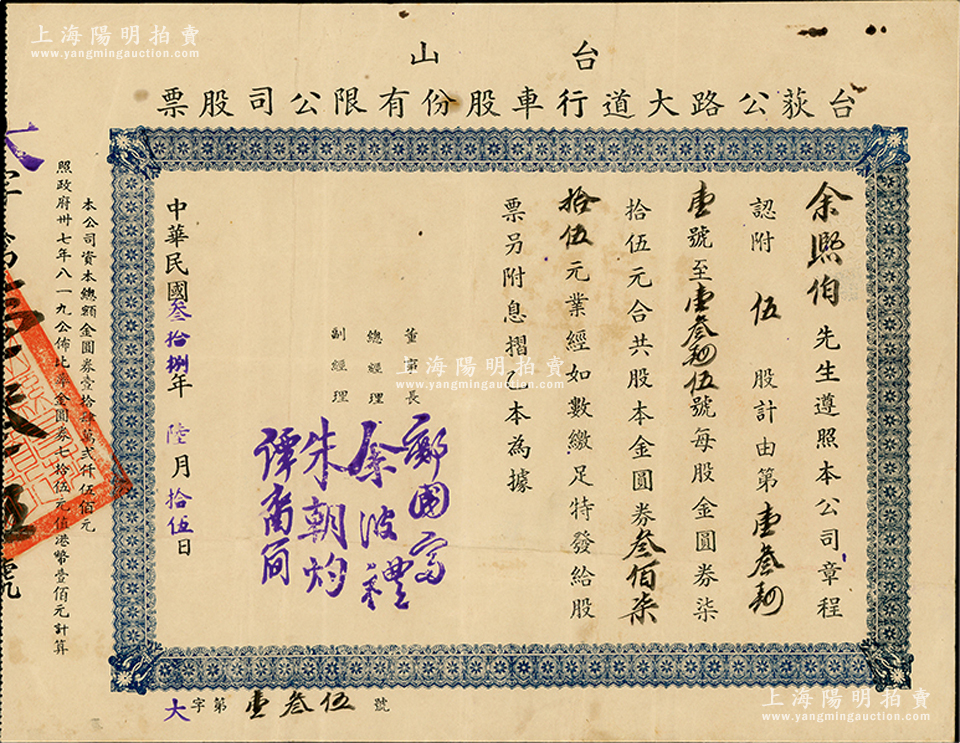 上海陽明拍賣
www.yangmingauction.com
台山
台荻公路大道行車股份有限公司股票
余熙伯先生遵照本公司章程
認附 伍 股計由第壹叁
壹號至壹叁伍號每股金圓券柒
拾伍元合共股本金圓券叁佰柒
拾伍元業經如數繳足特發給股
票另附息摺乙本為據
董事長
總經理
副經理
鄺國富
余波禮
朱朝灼
譚裔
中華民國叁拾捌年陸月拾伍日
大字第壹叁伍號
本公司資本總額金圓券壹拾肆萬弍仟伍佰元
照政府卅七年八一九公佈比率金圓券七拾伍元值港幣壹佰元計算
大字第
號
上海陽明拍賣
www.yangmingauction.com
上海陽明拍賣
www.yangmingauction.com